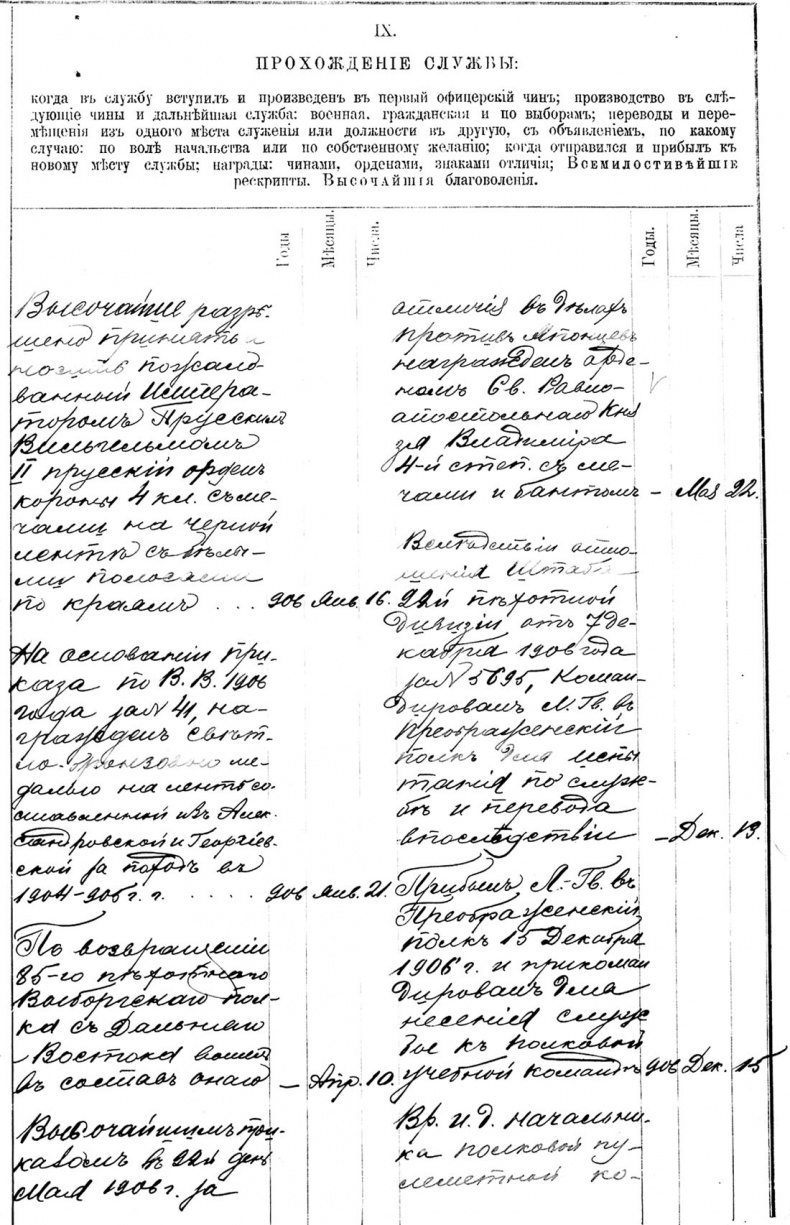 IX.
ПРОХОЖДЕНІЕ СЛУЖБЫ:
когда въ службу вступилъ и произведенъ въ первый офицерскій чинъ; производство въ слѣ-
дующіе чины и дальнѣйшая служба: военная, гражданская и по выборамъ; переводы и пере-
мѣщенія изъ одного мѣста служенія или должности въ другую, съ объявленіемъ, по какому
случаю: по волѣ начальства или по собственному желанію; когда отправился и прибылъ къ
новому мѣсту службы; награды: чинами, орденами, знаками отличія; Всемилостивѣйшіе
рескрипты. Высочайшія благоволенія.
Годы
Мѣсяцы.
Числа.
Высочайше разрѣ-
шено принять и
носить пожало-
ванный Импера-
торомъ Прусскимъ
Вильгельмомъ
II прусскій орденъ
короны 4 кл. съ ме-
чами на черной
лентѣ съ бѣлы-
ми полосами
по краямъ ... 906 Янв. 16.
На основаніи при-
каза по В. В. 1906
года за N 41, на-
гражденъ свѣт-
ло-бронзовою ме-
далью на лентѣ со-
ставленной изъ Алек-
сандровской и Георгіев-
ской за походъ въ
1904-905 г. г. .... 906 Янв. 21.
По возвращеніи
85-го пѣхотнаго
Выборгскаго пол-
ка съ Дальняго
Востока вошелъ
въ составъ онаго – Апр. 10.
Высочайшимъ при-
казомъ въ 22й день
Мая 1906 г. за
Годы.
Мѣсяцы.
Числа
отличія въ дѣлахъ
противъ Японцевъ
награжденъ орде-
номъ Св. Равно-
апостольнаго Кня
зя Владиміра
4-й степ. съ ме-
чами и бантомъ – Мая 22.
Вслѣдствіи отно-
шенія Штаба
22й пѣхотной
Дивизіи отъ 7 де-
кабря 1906 года
за N 5695, Коман-
дированъ Л. Гв. въ
Преображенскій
полкъ для испы
танія по служ-
бѣ и перевода
впослѣдствіи – Дек. 13.
Прибылъ Л.-Гв. въ
Преображенскій
полкъ 15 Декабря
1906 г. и прикоман
дированъ для
несенія служ
бы къ полковой
учебной командѣ 906 Дек. 15
Вр. и. д. начальни-
ка полковой пу-
леметной ко-